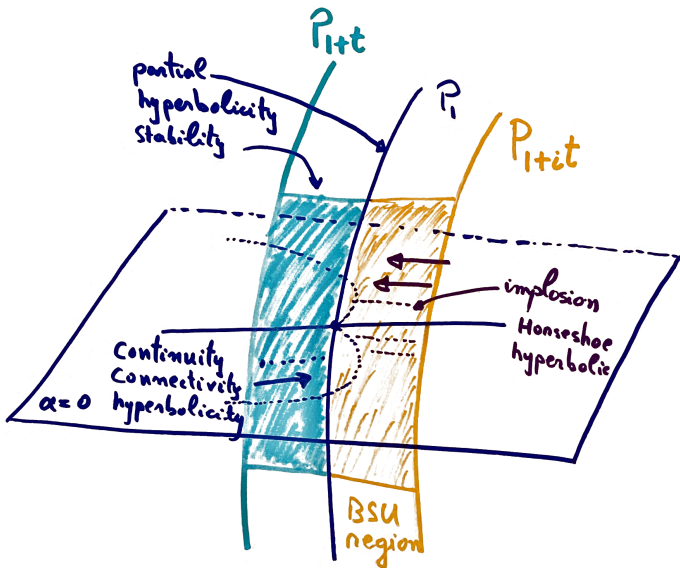 P1+t
partial
hyperbolicity
stability
P1
P1+it
implosion
Horseshoe
hyperbolic
Continuity
Connectivity
hyperbolicity
α=0
BSU
region